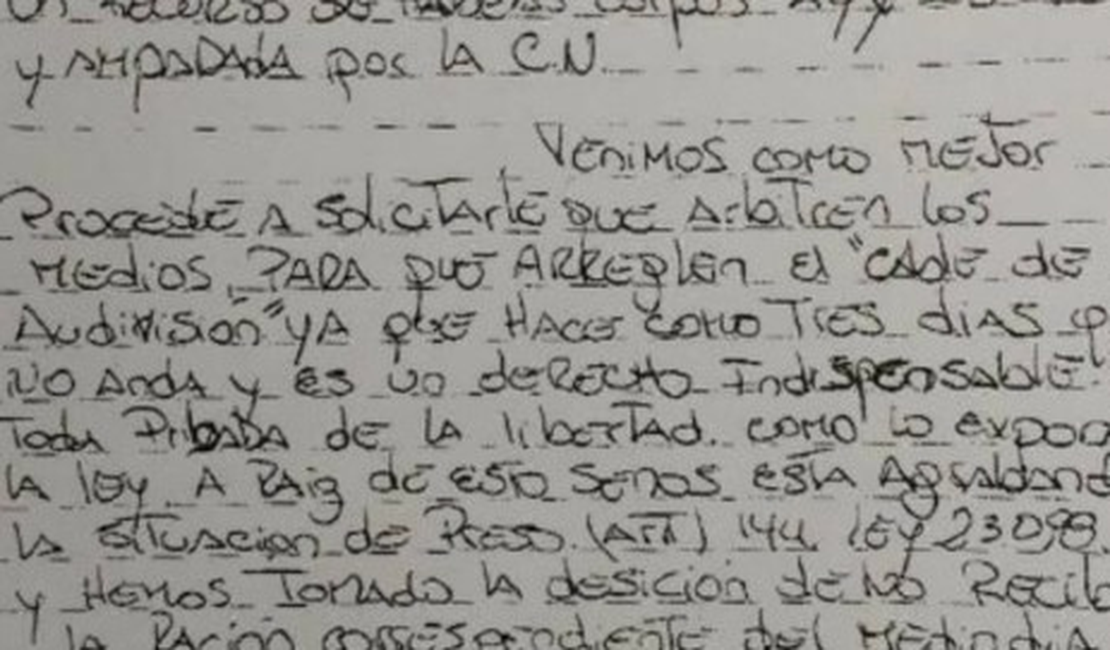 un recurso de habeas corpus
y AMPADADA por la C.N.
Venimos como mejor
Procede A solicitarle que Arbitren los
medios, PARA que ARREglen el "CABLE de
Audivisión" YA que HACE "como Tres dias q
NO Anda y es un deRecho Indispensable!
Toda Pribada de la libertad. como lo expon
la ley A RAiz de esto senos está Agraband
la situacion de Preso. (ART) 144 lEy 23098.
y Hemos Tomado la desicion de No Recib
la Ración correspondiente del Mediodia